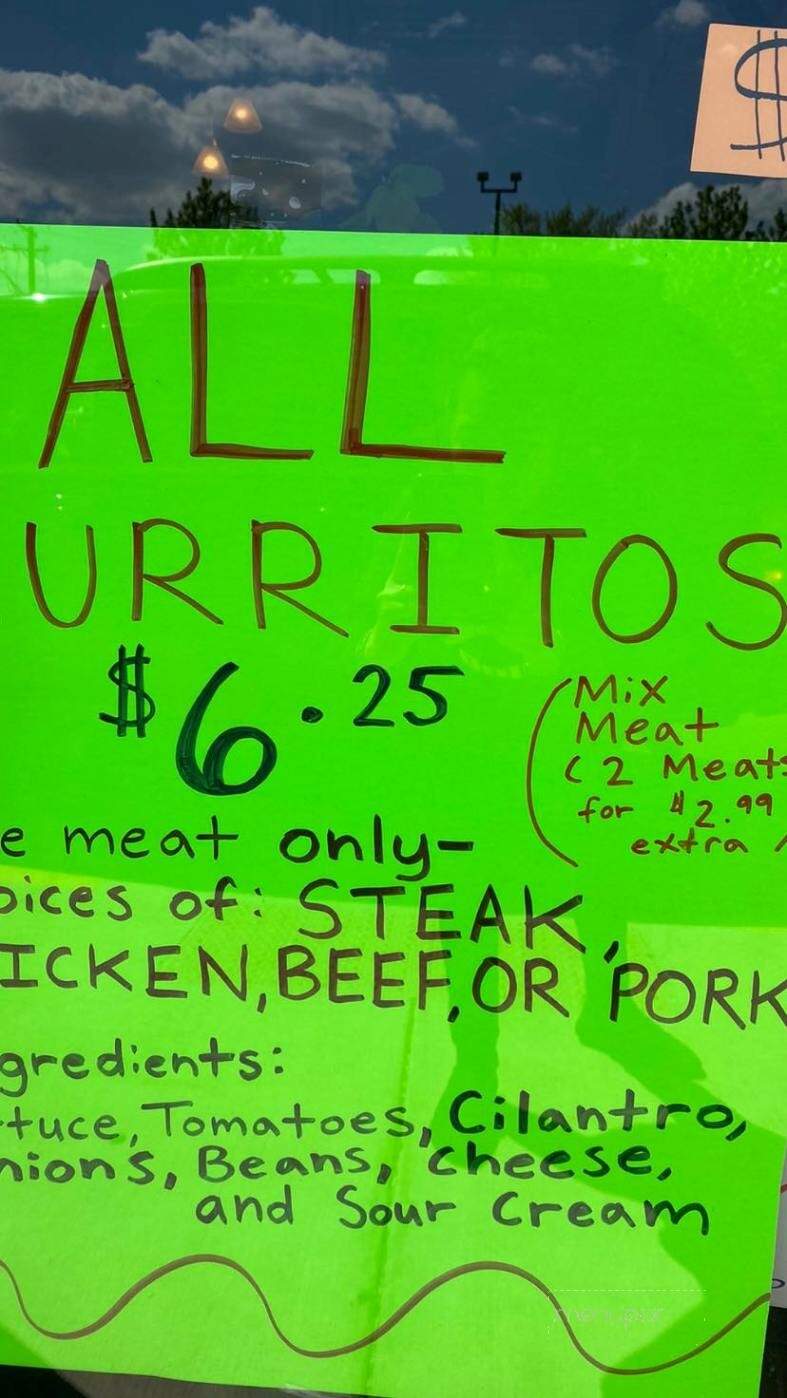 $
ALL
URRITOS
$6.25
(Mix
Meat
(2 Meats
for $2.99
extra
e meat only-
oices of: STEAK,
ICKEN, BEEF, OR PORK
gredients:
tuce, Tomatoes, Cilantro,
nions, Beans, cheese,
and Sour Cream